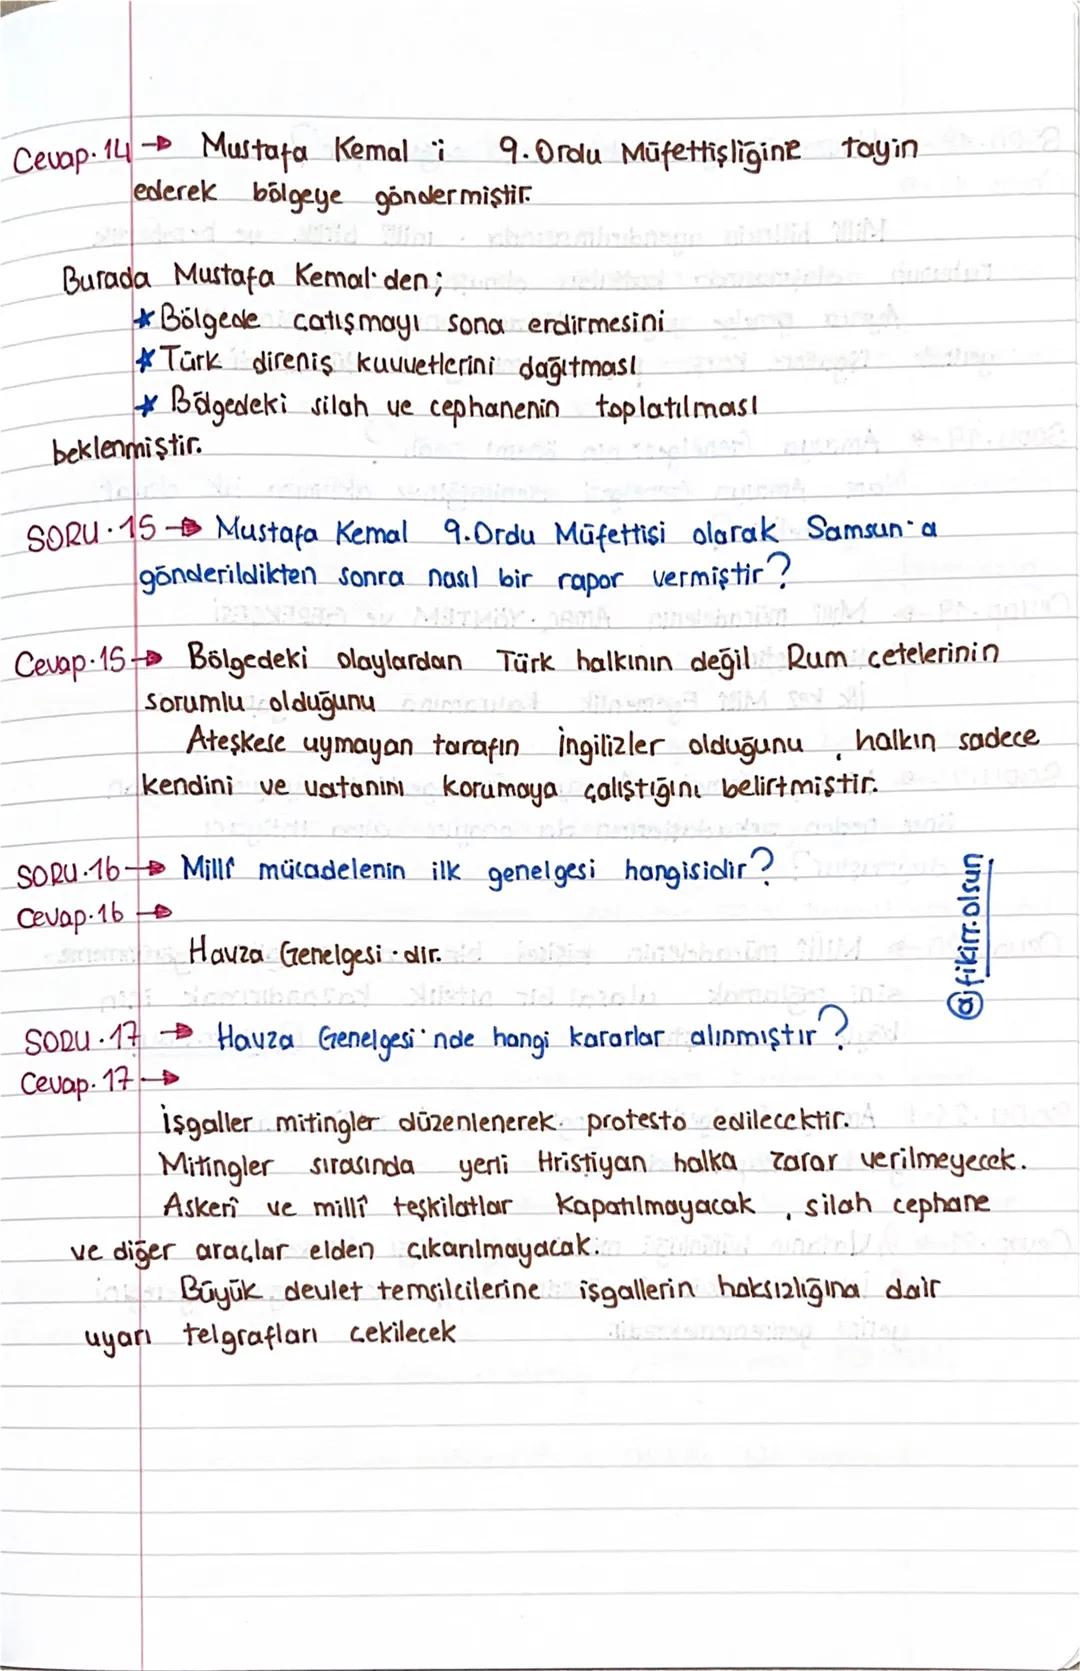 Cevap.14 → Mustafa Kemal 'i 9.Ordu Müfettişliğine tayin
ederek bölgeye göndermiştir.
Burada Mustafa Kemal'den;
* Bölgede catışmayı sona erdirmesini
* Türk direniş kuvvetlerini dağıtması
* Bölgedeki silah ve cephanenin toplatılması
beklenmiştir.
SORU.15 → Mustafa Kemal 9.Ordu Müfettisi olarak Samsun'a
gönderildikten sonra nasıl bir rapor vermiştir?
Cevap.15 → Bölgedeki olaylardan Türk halkının değil Rum cetelerinin
sorumlu olduğunu
Ateşkese uymayan tarafın İngilizler olduğunu, halkın sadece
kendini ve vatanını korumaya çalıştığını belirtmiştir.
SORU.16 → Millî mücadelenin ilk genelgesi hangisidir?
Cevap.16 →
Havza Genelgesi'dir.
@fikirr.olsun
SORU.17 → Havza Genelgesi'nde hangi kararlar alınmıştır?
Cevap.17 →
İşgaller mitingler düzenlenerek protesto edilecektir.
Mitingler sırasında yerli Hristiyan halka zarar verilmeyecek.
Askerî ve millî teşkilatlar kapatılmayacak, silah cephane
ve diğer araçlar elden çıkarılmayacak.
Büyük devlet temsilcilerine işgallerin haksızlığına dair
uyarı telgrafları cekilecek